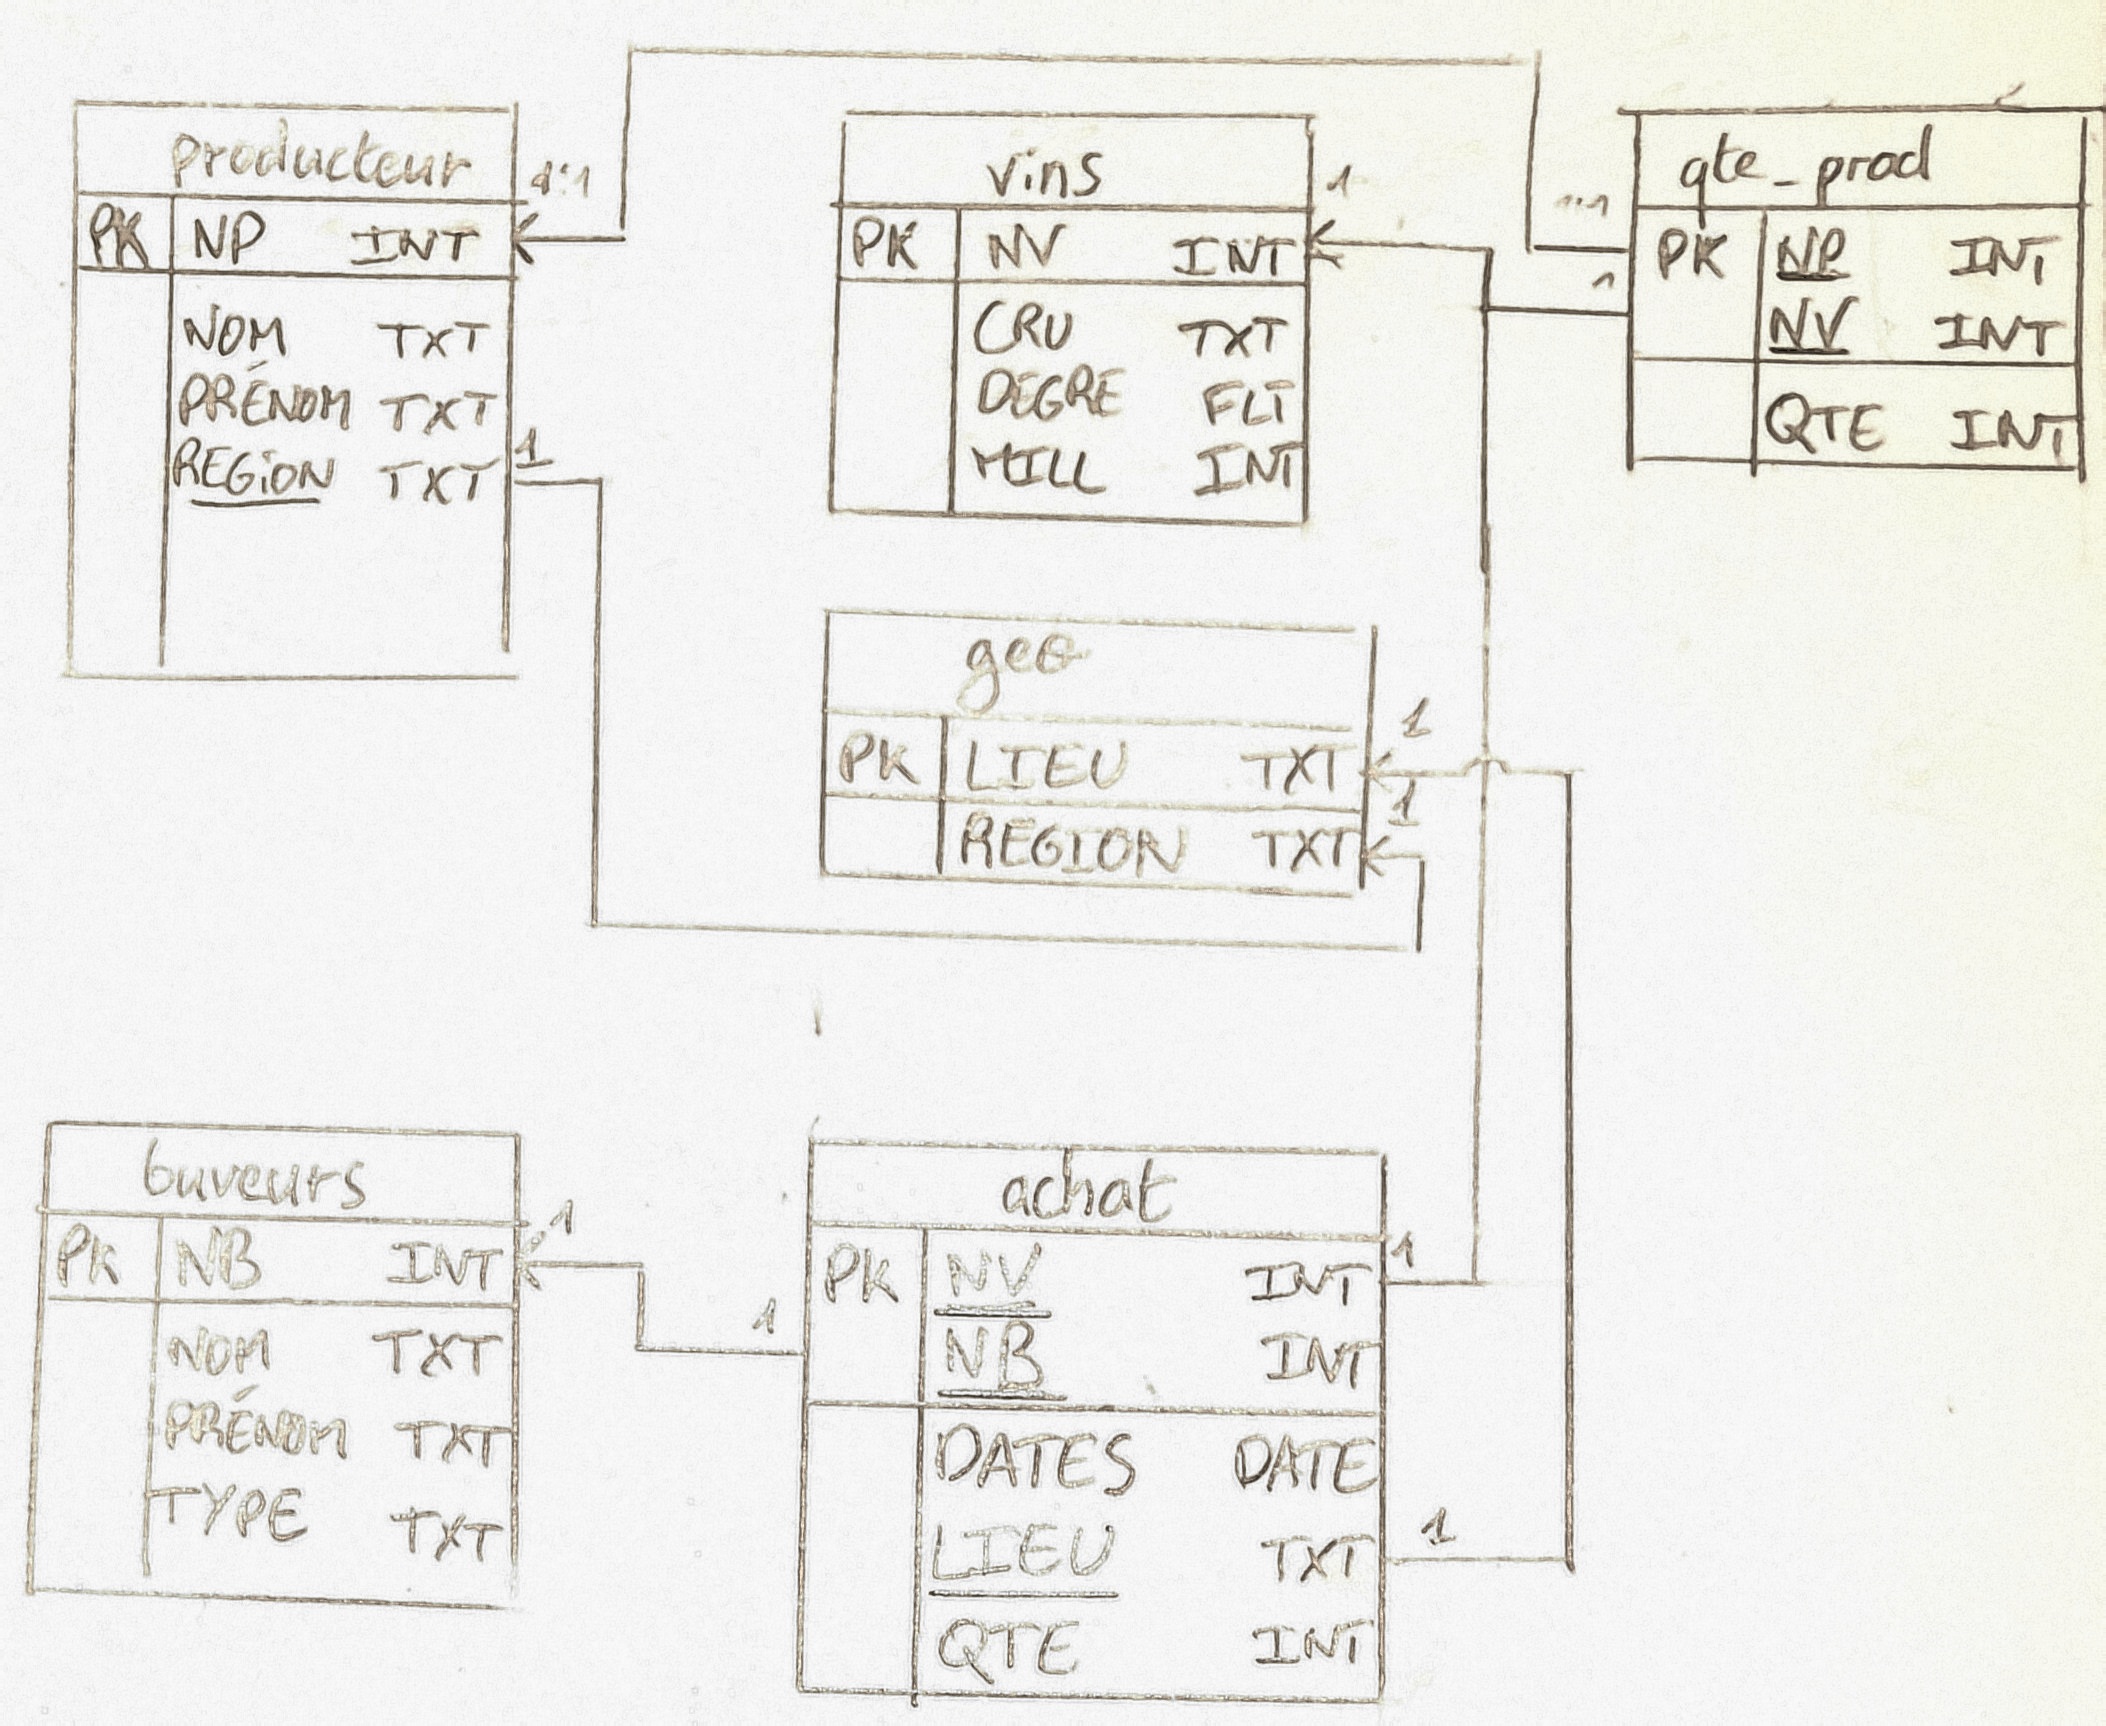 producteur
1..1
PK NP INT
NOM TXT
PRÉNOM TXT
REGION TXT
1
vins
1
PK NV INT
CRU TXT
DEGRE FLT
MILL INT
qte_prod
1
PK NP INT
NV INT
QTE INT
geo
1
PK LIEU TXT
1
REGION TXT
buveurs
1
PK NB INT
NOM TXT
PRÉNOM TXT
TYPE TXT
1
achat
1
PK NV INT
NB INT
DATES DATE
LIEU TXT
1
QTE INT